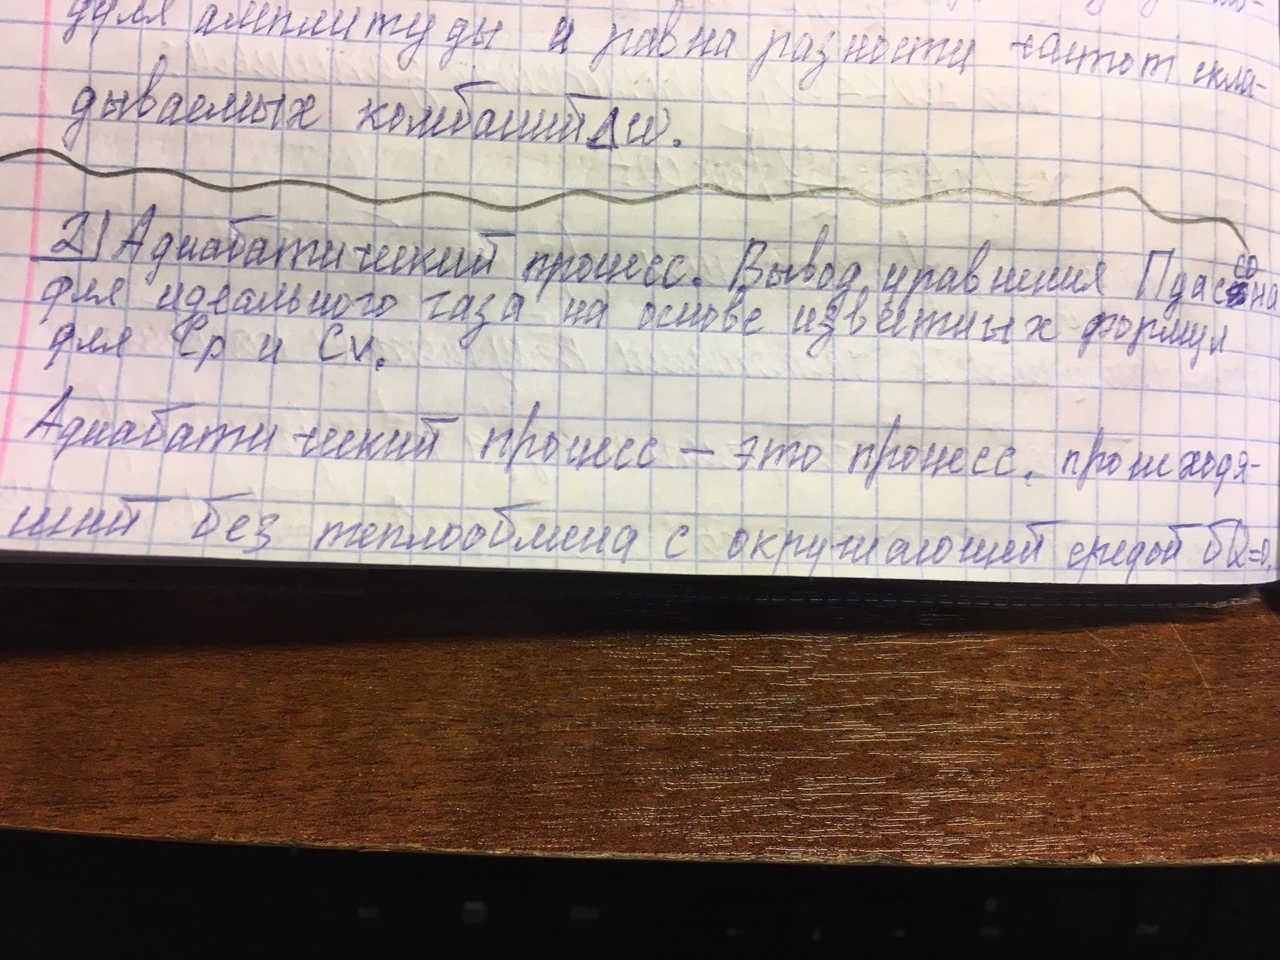 дуля амплитуды и равна разности частот скла-
дываемых комбаний Δω.
2) Адиабатический процесс. Вывод уравнения Пуассона
для идеального газа на основе известных формул
для Cp и Cv.
Адиабатический процесс – это процесс, происходя-
щий без теплообмена с окружающей средой δQ=0.